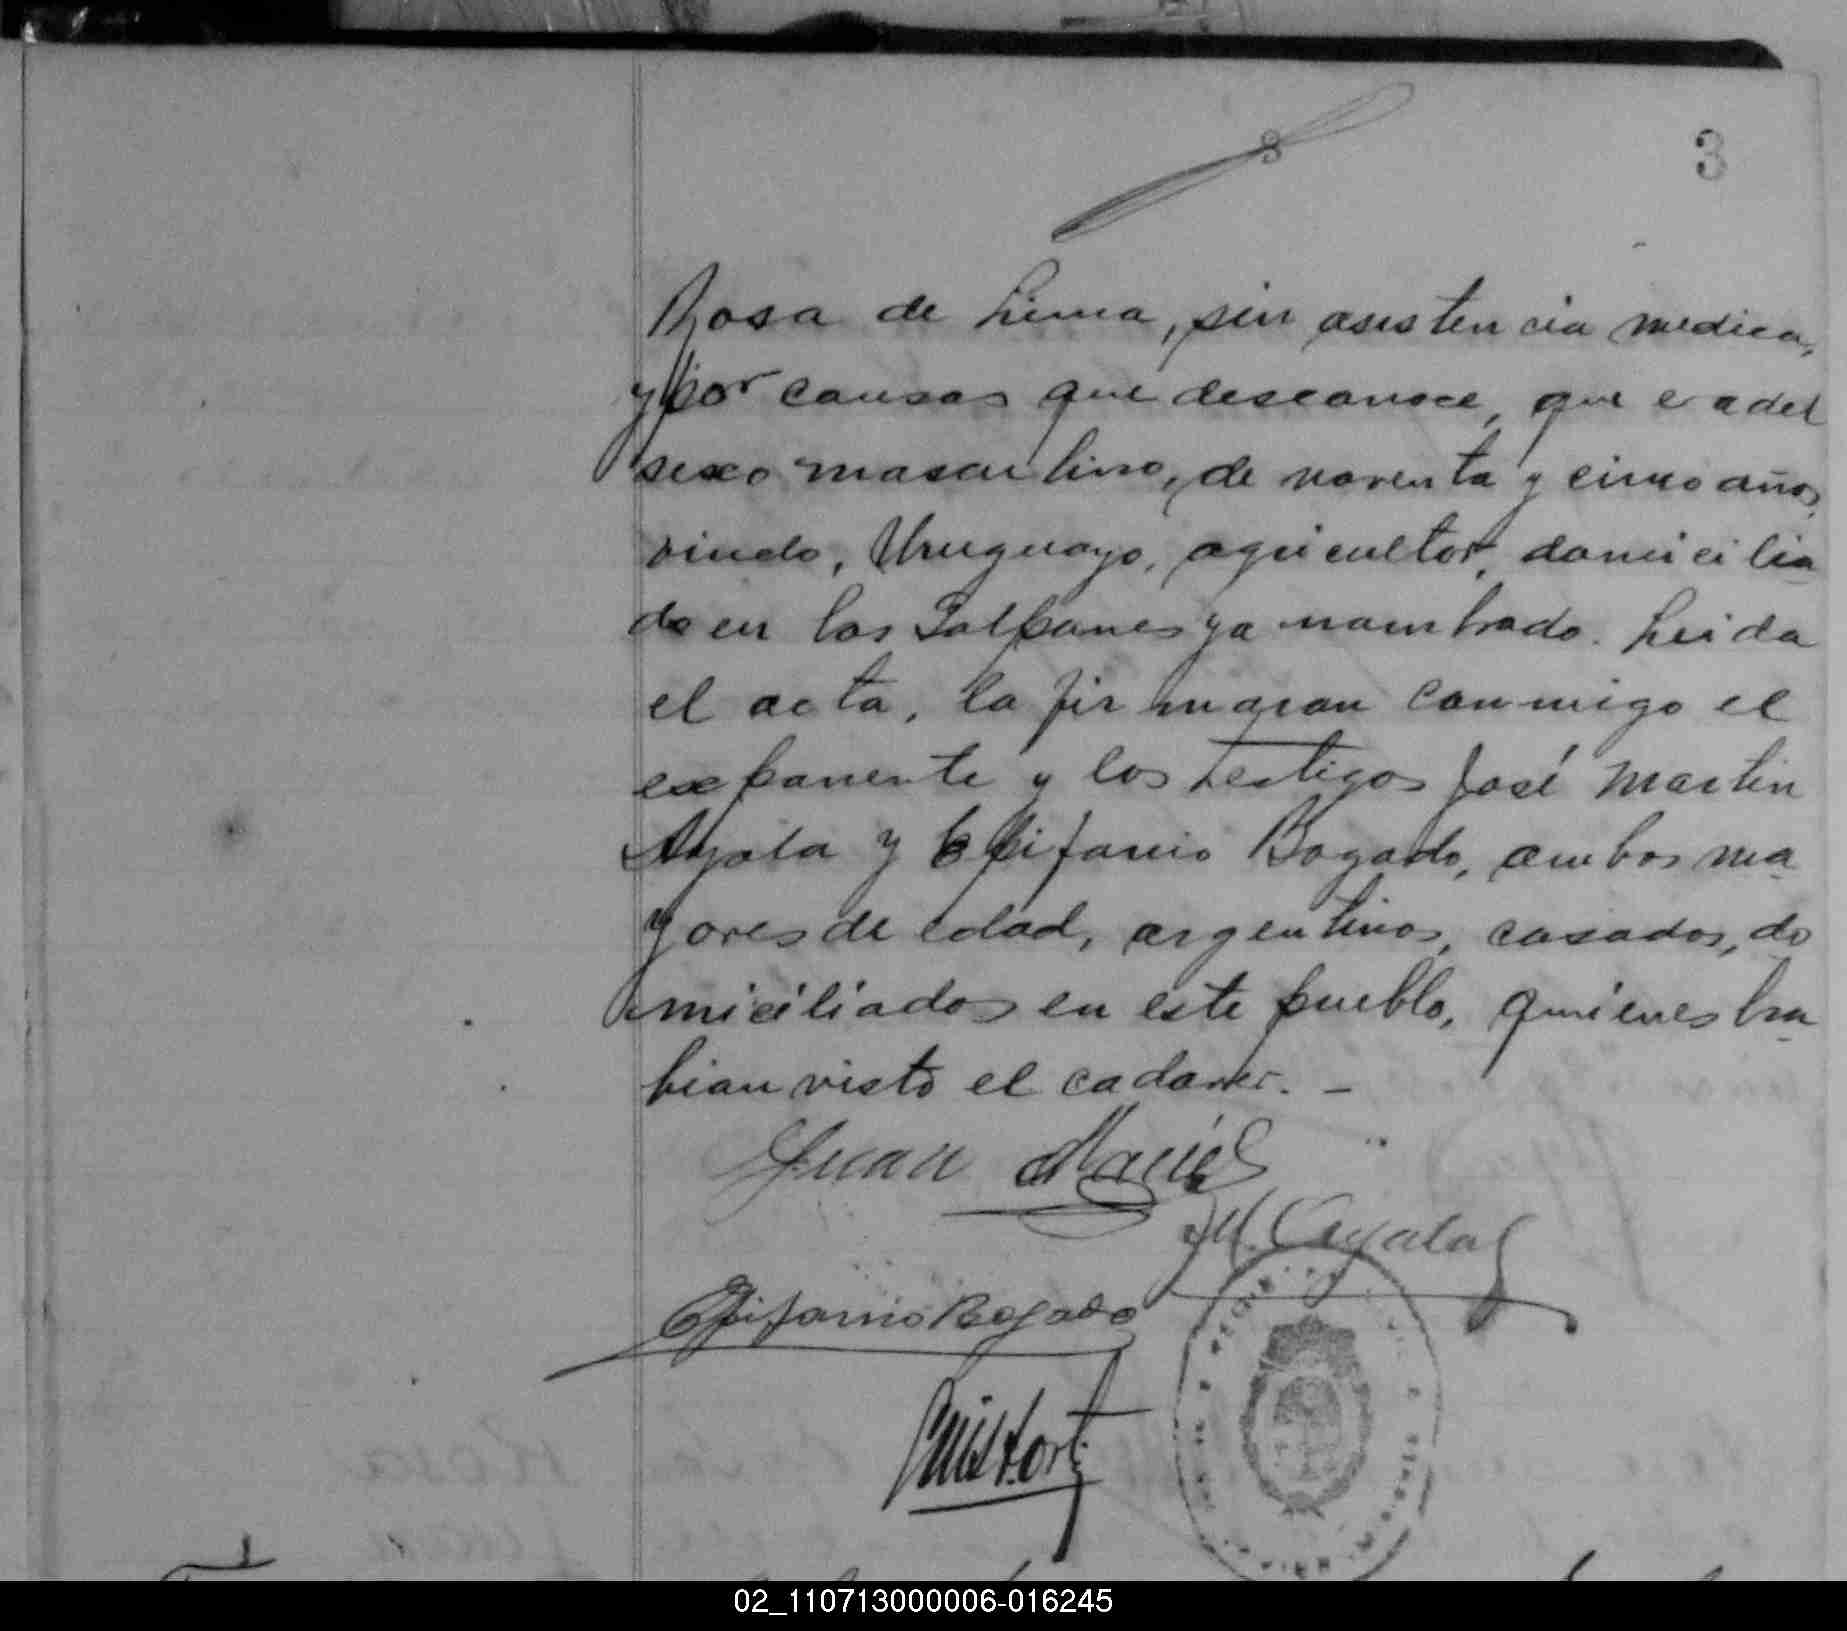 3
8
Rosa de Lima, sin asistencia medica,
y por causas que desconoce, que era del
sexo masculino, de noventa y cinco años,
viudo, Uruguayo, agricultor, domicilia
do en los Galpones ya nombrado. Leida
el acta, la firmaran conmigo el
exponente y los testigos José Martin
Ayala y Epifanio Bogado, ambos ma
yores de edad, argentinos, casados, do
miciliados en este pueblo, quienes ha
bian visto el cadaver. –
Juan Maciel
J M. Ayala
Epifanio Bogado
02_110713000006-016245